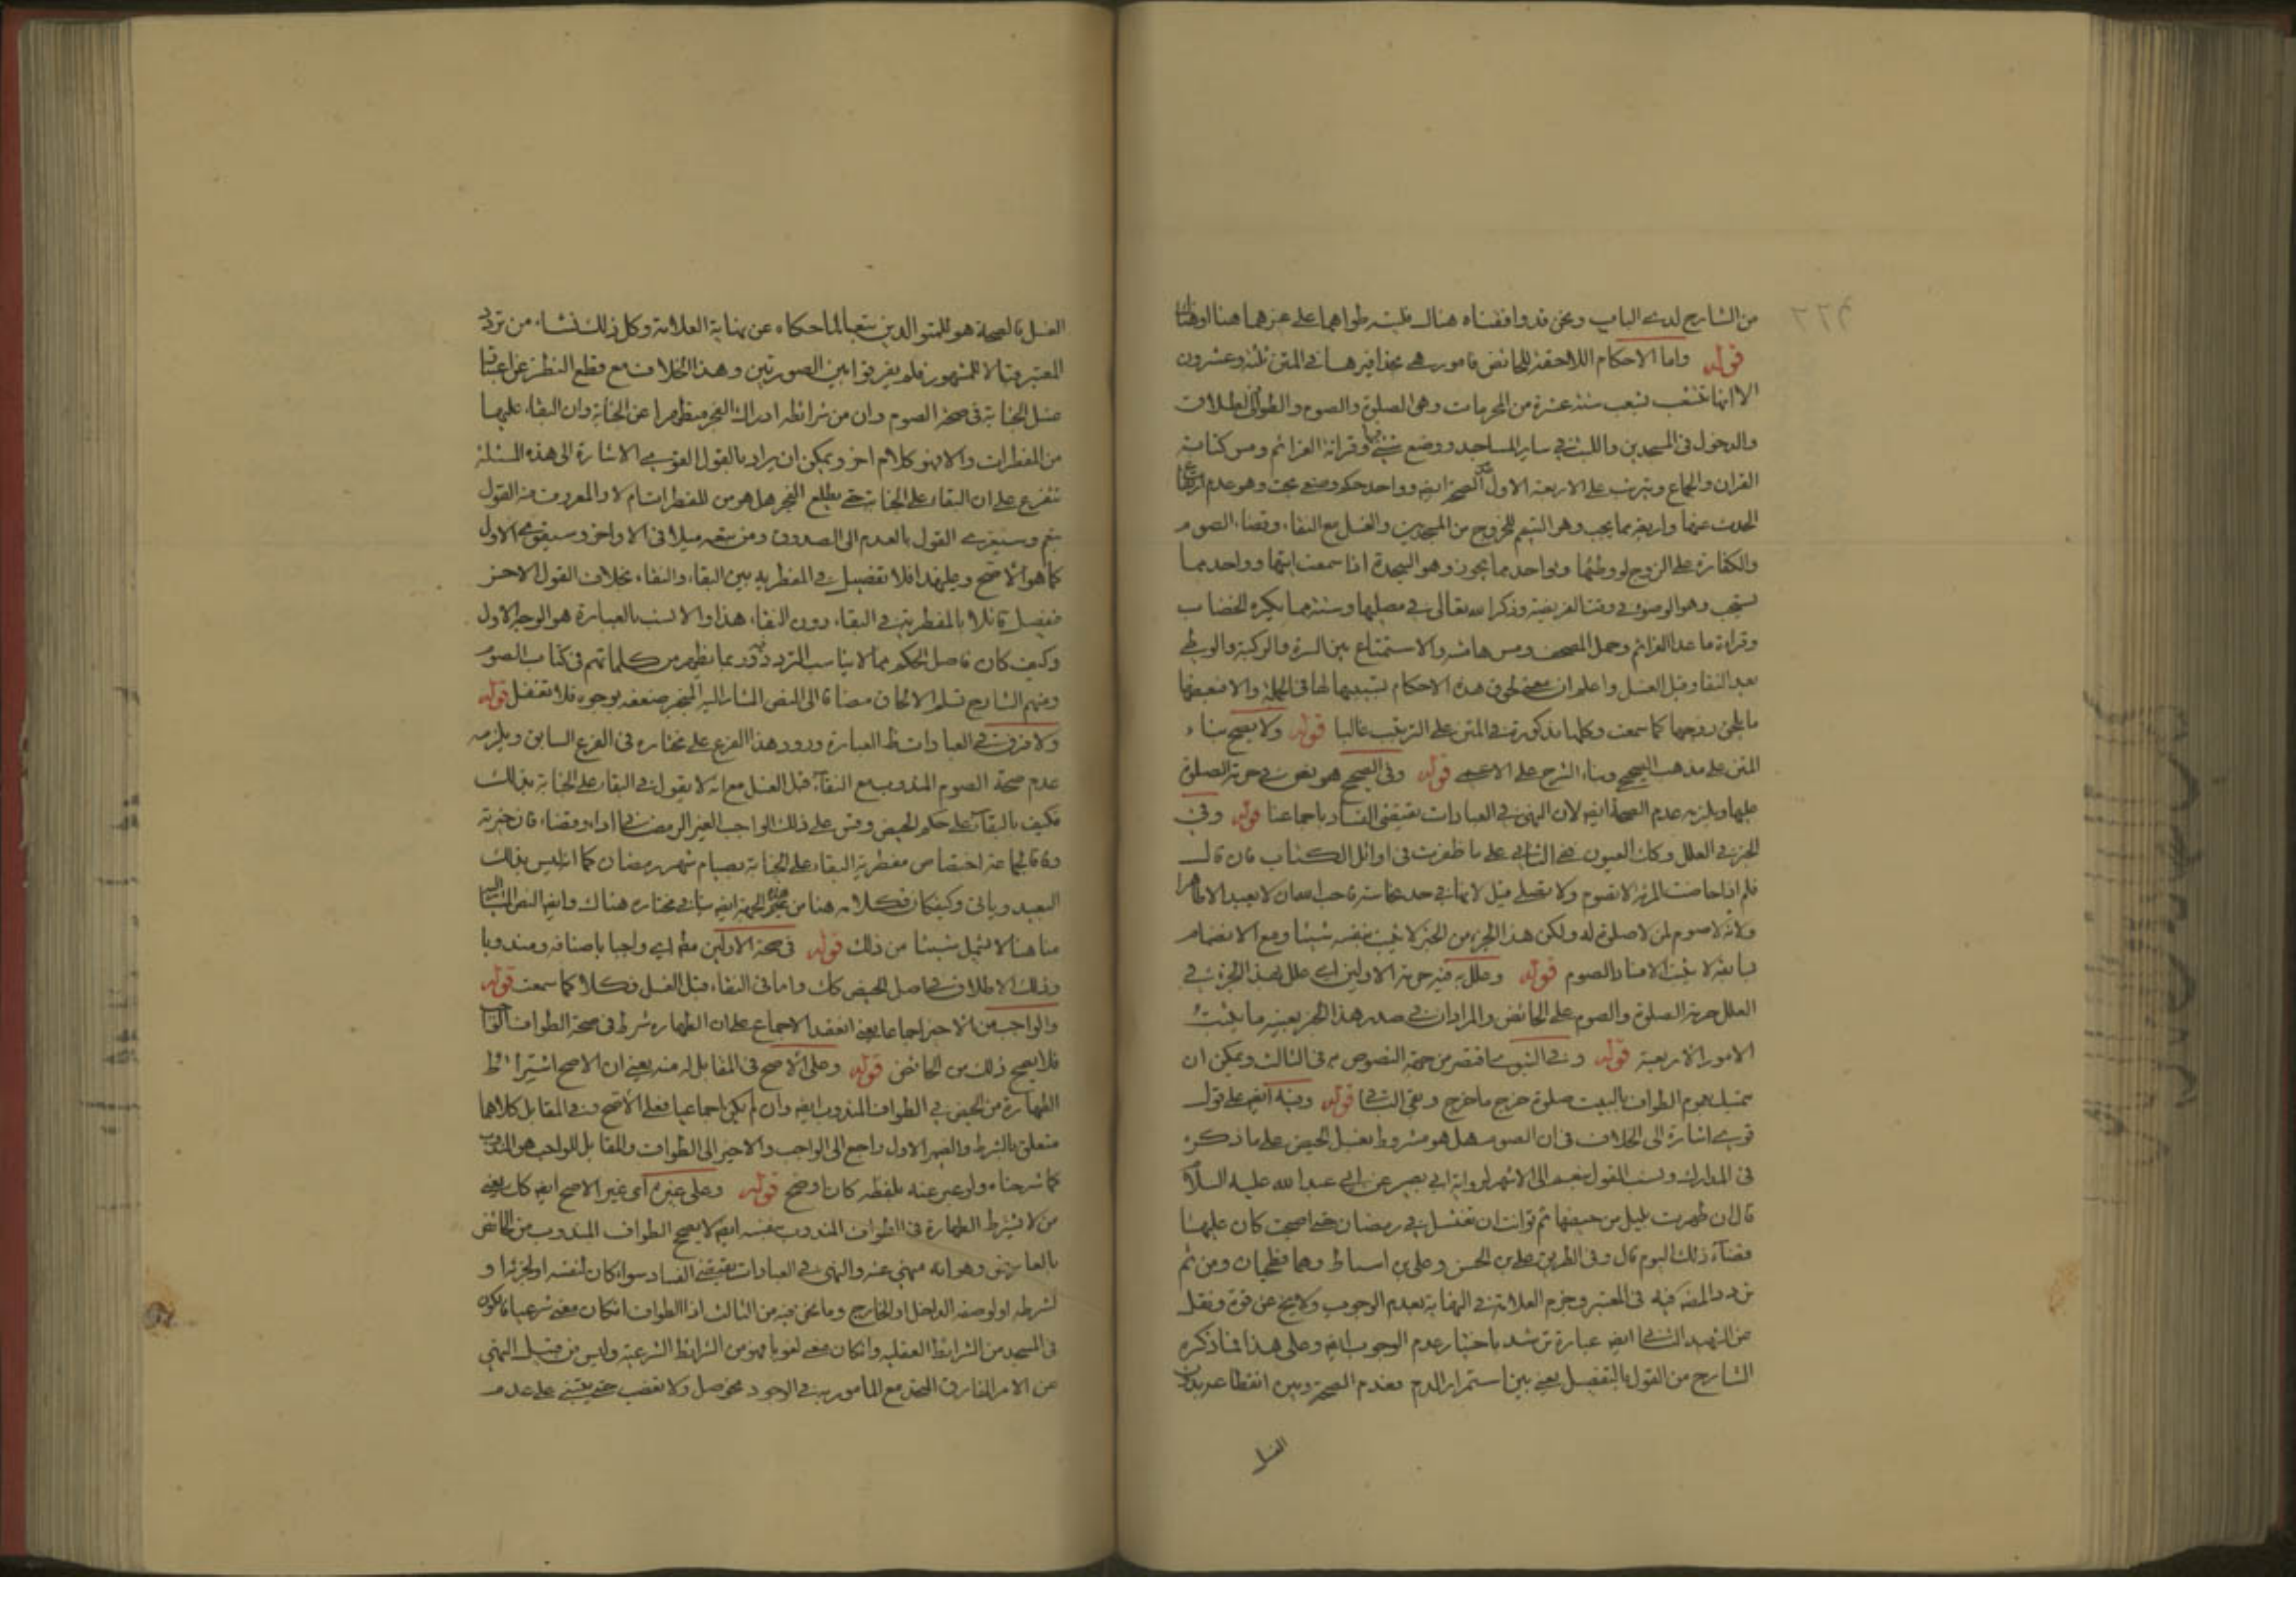 من الشارح لدى الباب ونحن قد وافقناه هناك فليته طواهما على غرهما هنا او هناك
قوله واما الاحكام اللاحقة للحائض فامور هي بحذافيرها في المتن ثلثة وعشرون
الا انها تنشعب ستة عشرة من المحرمات وهى الصلوة والصوم والطواف والطلاق
والدخول فى المسجدين واللبث في ساير المساجد ووضع شيء فيها وقرائة العزائم ومس كتابة
القران والجماع ويترتب على الاربعة الاول الصحة ايضا وواحد حكم وضعي بحت وهو عدم ارتفاع
الحدث عنها واربعة مما يجب وهو التيمم للخروج من المسجدين والغسل مع النقاء وقضاء الصوم
والكفارة على الزوج لو وطئها وواحد مما يجوز وهو السجدة اذا سمعت ايتها وواحد مما
يستحب وهو الوضوء في وقت الفريضة وذكر الله تعالى في مصليها وستة مما يكره الخضاب
وقراءة ما عدا العزائم وحمل المصحف ومس هامشه والاستمتاع بين السرة والركبة والوطى
بعد النقا وقبل الغسل واعلم ان معنى لحوق هذه الاحكام تسببها لها فى الجملة والا فبعضها
ما يلحق زوجها كما سمعت وكلها مذكورة في المتن على الترتيب غالبا قوله ولا يصح بناء
المتن على مذهب الصحيحي وبناء الشرح على الاعمي قوله وفى الصحيح هو نص في حرمة الصلوة
عليها ويلزمه عدم الصحة ايضا لان النهى في العبادات يقتضى الفساد باجماعنا قوله وفى
الخبر في العلل وكك العيون في الثاني على ما ظفرت فى اوائل الكتاب فان قال
فلم اذا حاضت المرئة لا تصوم ولا تصلي قيل لانها في حد نجاسة فاحب الله ان لا يعبد الا طاهرا
ولانه لا صوم لمن لا صلوة له ولكن هذا الجزء من الخبر لا يثبت بنفسه شيئا ومع الانضمام
بسابقه لا يثبت الا فساد الصوم قوله وعلل به فيه حرمة الاولين اى علل بهذا الجزء في
العلل حرمة الصلوة والصوم على الحائض والمراد ان في صدر هذا الخبر بعينه ما يثبت
الامور الاربعة قوله وفي النبوي اقتصر من جهة النصوص م فى الثالث ويمكن ان
يتمسك بعموم الطواف بالبيت صلوة خرج ما خرج وبقى الباقي قوله وفيه ايضا على قول
قوي اشارة الى الخلاف فى ان الصوم هل هو مشروط بغسل الحيض على ما ذكره
فى المدارك ونسب القول به الى الاشهر لرواية ابي بصير عن ابي عبد الله عليه السلام
قال ان طهرت بليل من حيضها ثم توانت ان تغتسل في رمضان حتى اصبحت كان عليها
قضاء ذلك اليوم قال وفى الطريق على بن الحسن وعلى بن اسباط وهما فطحيان ومن ثم
تردد المصنف فيه فى المعتبر وجزم العلامة في النهاية بعدم الوجوب ولا يخ عن قوة ونقل
عن الشهيد الثاني ايضا عبارة ترشد باختيار عدم الوجوب ايضا وعلى هذا فما ذكره
الشارح من القول بالتفصيل يعني بين استمرار الدم فعدم الصحة وبين انقطاعه بدون
الغسل
الغسل فالصحة هو للمتوالدين تبعا لما حكاه عن نهاية العلامة وكل ذلك نشاء من تردد
المعتبر قبالا للمشهور فلم يفرقوا بين الصورتين وهذا الخلاف مع قطع النظر عن اعتبار
غسل الجنابة فى صحة الصوم وان من شرائطه ادراك الفجر متطهرا عن الجنابة وان البقاء عليها
من المفطرات والا فهو كلام اخر ويمكن ان يراد بالقول القوي الاشارة الى هذه المسئلة
تتفرع على ان البقاء على الجنابة حتى يطلع الفجر هل هو من المفطرات ام لا والمعروف منه القول
بنعم وسيعزى القول بالعدم الى الصدوق ومن تبعه ميلا فى الاواخر وسيقوى الاول
كما هو الاصح وعليهذا فلا تفصيل في المفطرية بين البقاء والنقاء بخلاف القول الاخر
فيفصل قائلا بالمفطرية في البقاء دون النقاء هذا والانسب بالعبارة هو الوجه الاول
وكيف كان فاصل الحكم مما لا يناسب التردد فيه وربما يظهر من كلماتهم فى كتاب الصوم
ومنهم الشارح تسلم الالحاق مضافا الى النص المشار اليه المنجبر ضعفه بوجوه فلا تغفل قوله
ولا فرق في العبادات ظ العبارة ورود هذا الفرع على مختاره فى الفرع السابق ويلزمه
عدم صحة الصوم المندوب مع النقاء قبل الغسل مع انه لا يقول في البقاء على الجنابة بذلك
فكيف بالبقاء على حكم الحيض وقس على ذلك الواجب الغير الرمضاني اداء وقضاء فان خبرته
وفاقا لجماعة اختصاص مفطرية البقاء على الجنابة بصيام شهر رمضان كما انه ليس بذلك
البعيد وياتى وكيف كان فكلامه هنا من هذه الجهة ايضا ينافي مختاره هناك وايضا النص المشار اليه
منا هنا لا يشمل شيئا من ذلك قوله فى صحة الاولين مط اى واجبا باصنافه ومندوبا
وذلك الاطلاق في اصل الحيض كك واما فى النقاء قبل الغسل فكلا كما سمعت قوله
والواجب من الاخير اجماعا يعني انعقد الاجماع على ان الطهارة شرط فى صحة الطواف الواجب
فلا يصح ذلك من الحائض قوله وعلى الاصح فى المقابل له منه يعني ان الاصح اشتراط
الطهارة من الحيض في الطواف المندوب ايضا وان لم يكن اجماعيا فعلى الاصح وفي المقابل كلاهما
متعلق بالشرط والضمير الاول راجع الى الواجب والاخير الى الطواف والمقابل للواجب هو المندوب
كما شرحناه ولو عبر عنه بلفظه كان اوضح قوله وعلى غيره اى غير الاصح ايضا كك يعني
من لا يشترط الطهارة فى الطواف المندوب عنده ايضا لا يصح الطواف المندوب من الحائض
بالعارض وهو انه منهي عنه والنهى في العبادات يقتضي الفساد سواء كان لنفسه او لجزئه او
لشرطه او لوصفه الداخل او الخارج وما نحن فيه من الثالث اذ الطواف ان كان معنى شرعيا فالكون
فى المسجد من الشرائط العقلية وان كان معنى لغويا فهو من الشرائط الشرعية وليس من قبيل النهي
عن الامر المفارق المتحد مع المامور به في الوجود نحو صل ولا تغصب حتى يبتني على عدم